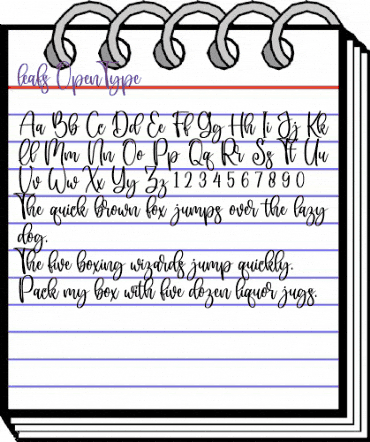 leafs OpenType
Aa Bb Cc Dd Ee Ff Gg Hh Ii Jj Kk
Ll Mm Nn Oo Pp Qq Rr Ss Tt Uu
Vv Ww Xx Yy Zz 1 2 3 4 5 6 7 8 9 0
The quick brown fox jumps over the lazy
dog.
The five boxing wizards jump quickly.
Pack my box with five dozen liquor jugs.